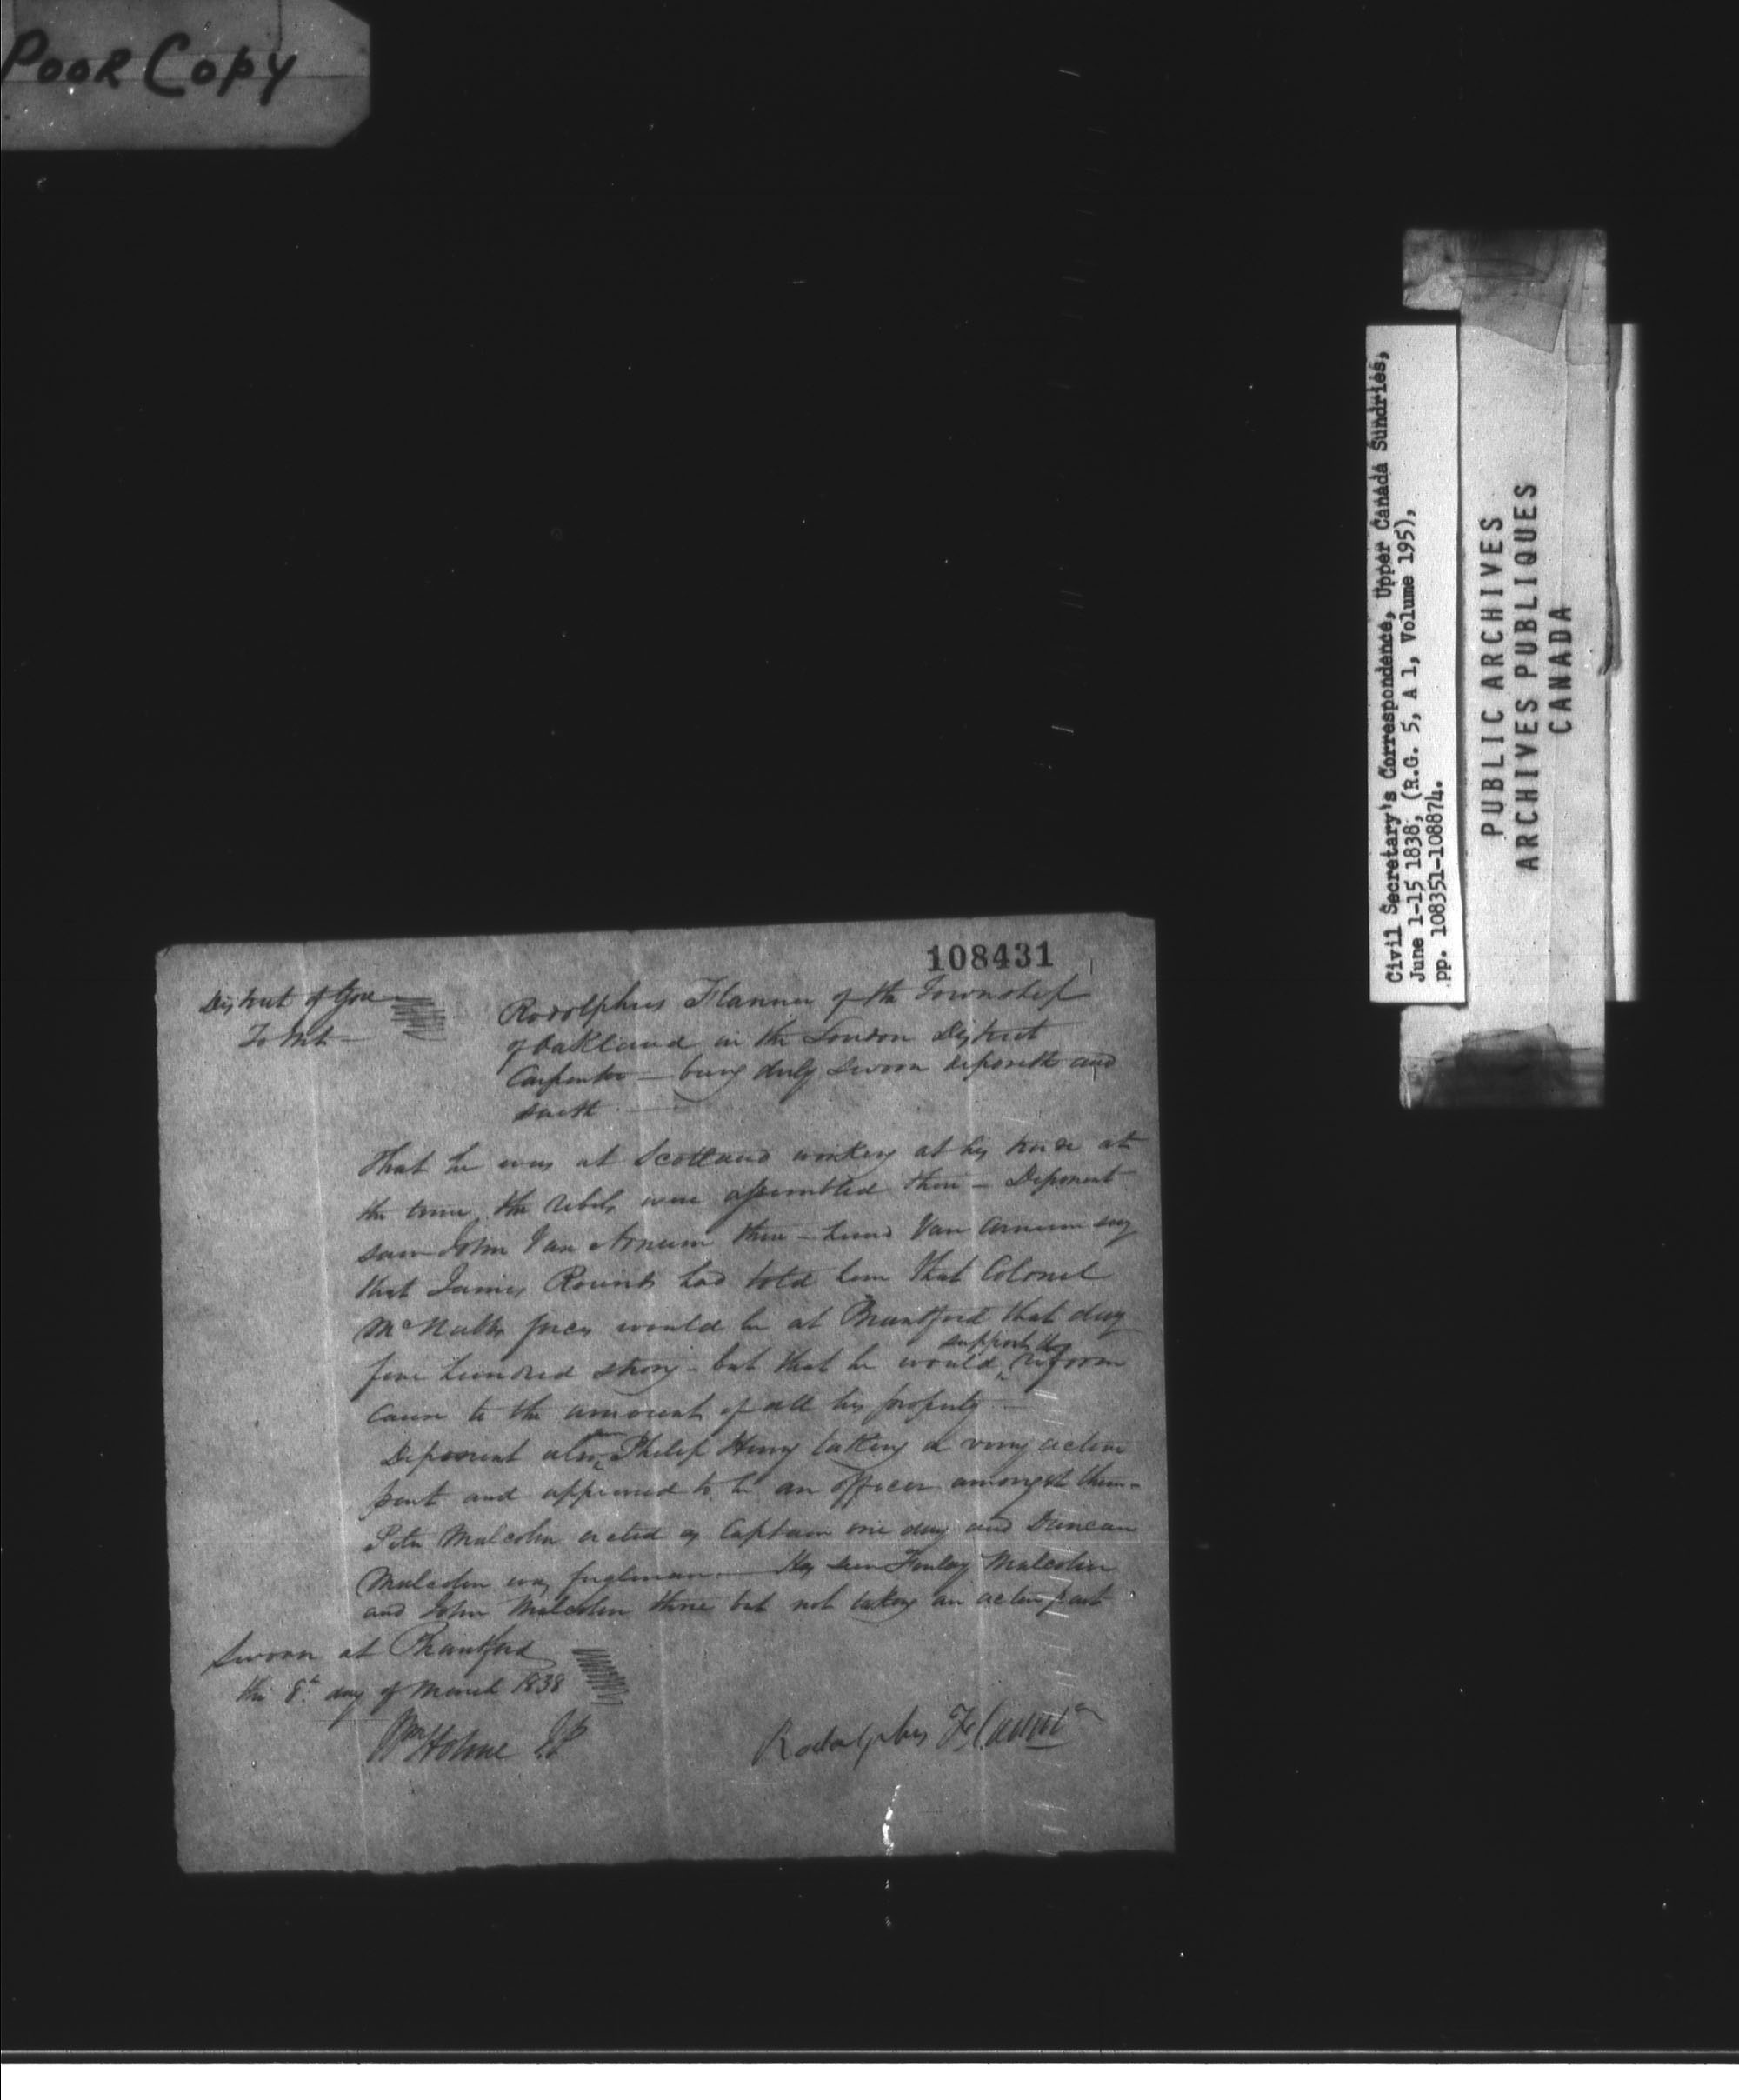 POOR COPY
108431
District of Gore
To Wit
Rodolphus Flanner of the Township
of Oakland in the London District
Carpenter – being duly sworn deposeth and
saith
That he was at Scotland working at his trade at
the time the rebels were assembled there – Deponent
saw John Van Arnum there – heard Van Arnum say
that James Rounds had told him that Colonel
McNabbs forces would be at Brantford that day
five hundred strong – but that he would support the reform
cause to the amount of all his property –
Deponent Philip Henry taking a very active
part and appeared to be an officer amongst them –
Peter Malcolm acted as Captain one day and Duncan
Malcolm was fugleman – Finlay Malcolm
and John Malcolm there but not taking an active part
Sworn at Brantford
this 8th day of March 1838
Wm Holme J.P.
Rodolphus Flanner
Civil Secretary's Correspondence, Upper Canada Sundries,
June 1-15 1838, (R.G. 5, A 1, Volume 195),
pp. 108351-108874.
PUBLIC ARCHIVES
ARCHIVES PUBLIQUES
CANADA